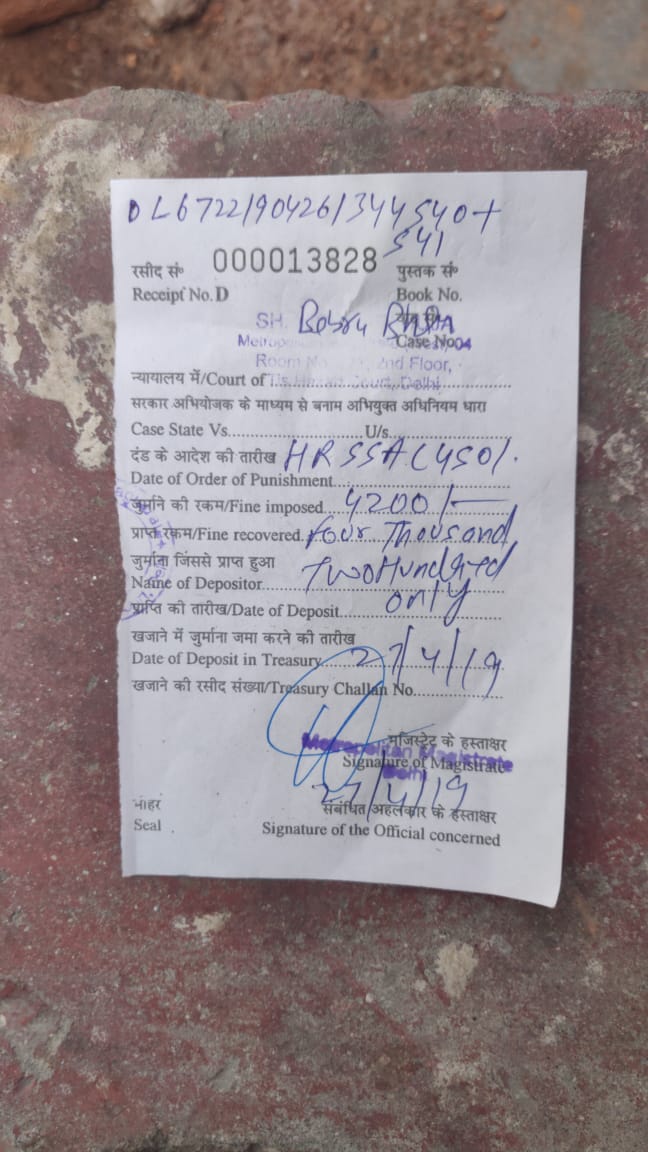 DL6722/90426/344540+
541
रसीद सं॰ 000013828 पुस्तक सं॰
Receipt No. D Book No.
SH. Babru
Case No. 04
Room No 2nd Floor,
न्यायालय में/Court of Tis Hazari Court, Delhi
सरकार अभियोजक के माध्यम से बनाम अभियुक्त अधिनियम धारा
Case State Vs. U/s.
दंड के आदेश की तारीख HR55AC4501.
Date of Order of Punishment
जुर्माने की रकम/Fine imposed 4200/-
प्राप्त रकम/Fine recovered. four Thousand
जुर्माना जिससे प्राप्त हुआ Two Hundred
Name of Depositor only
प्राप्ति की तारीख/Date of Deposit
खजाने में जुर्माना जमा करने की तारीख
Date of Deposit in Treasury 27/4/19
खजाने की रसीद संख्या/Treasury Challan No.
मजिस्ट्रेट के हस्ताक्षर
Metropolitan Magistrate
Signature of Magistrate
Delhi
27/4/19
मोहर संबंधित अहलकार के हस्ताक्षर
Seal Signature of the Official concerned